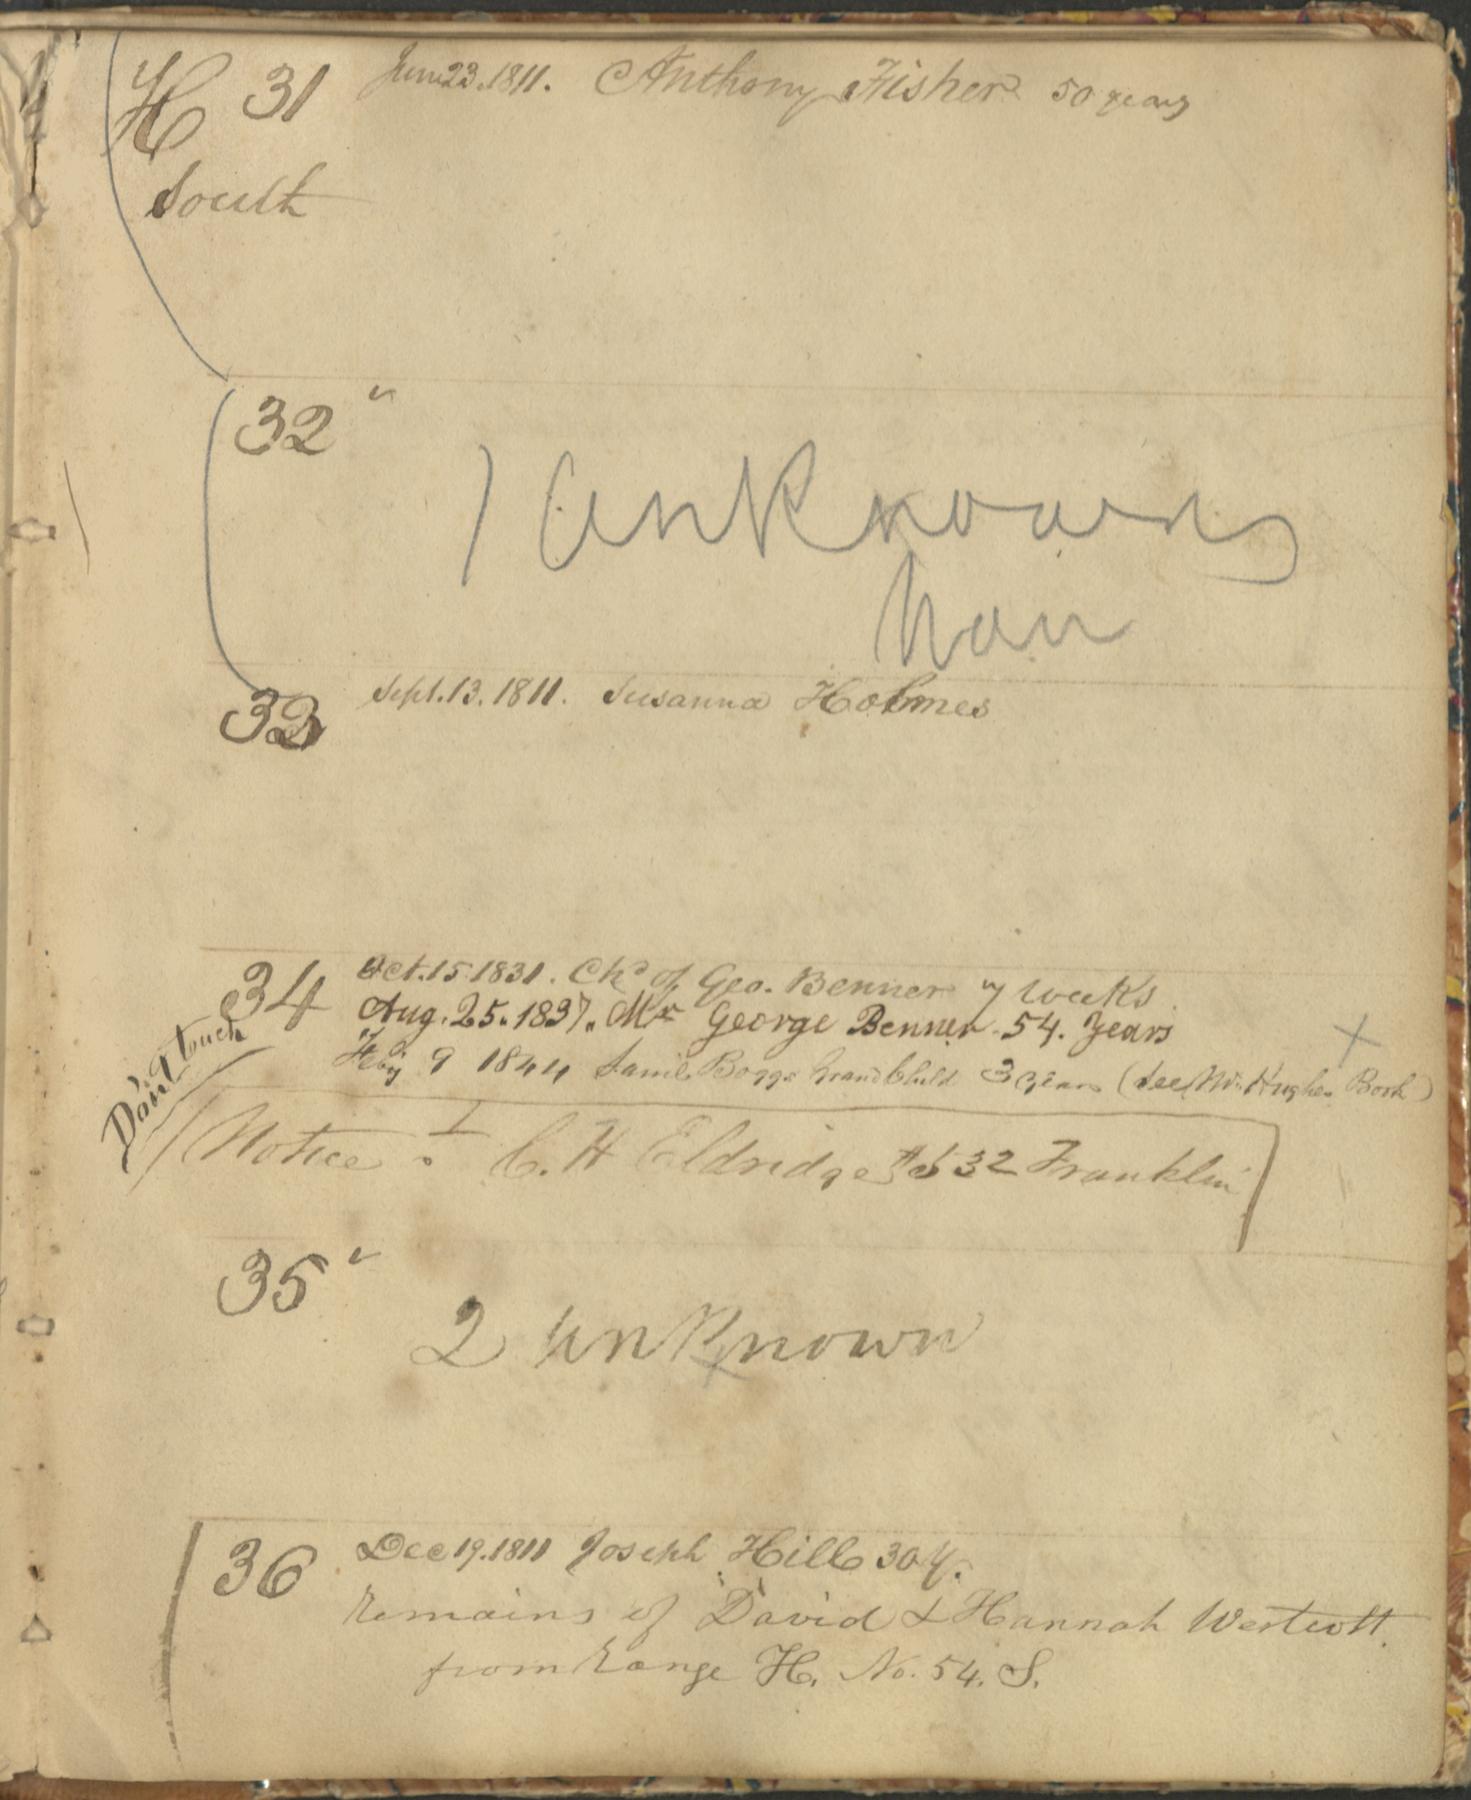 H 31 June 23. 1811. Anthony Fisher 50 years
South
32 "
1 Unknown
Man
33 Sept. 13. 1811. Susanna Holmes
34 Oct. 15 1831. Chd of Geo. Benner 7 weeks
Aug. 25. 1837. Mr George Benner. 54. Years
Feby 9 1844 Saml Boggs Grand Child 3 years (See Wm Hughes Book)
Don't touch
Notice C. H Eldridge 532 Franklin
35 "
2 unknown
36 Dec 19. 1811 Joseph Hill 30 y.
Remains of David & Hannah Westcott.
from Range H. No. 54. S.